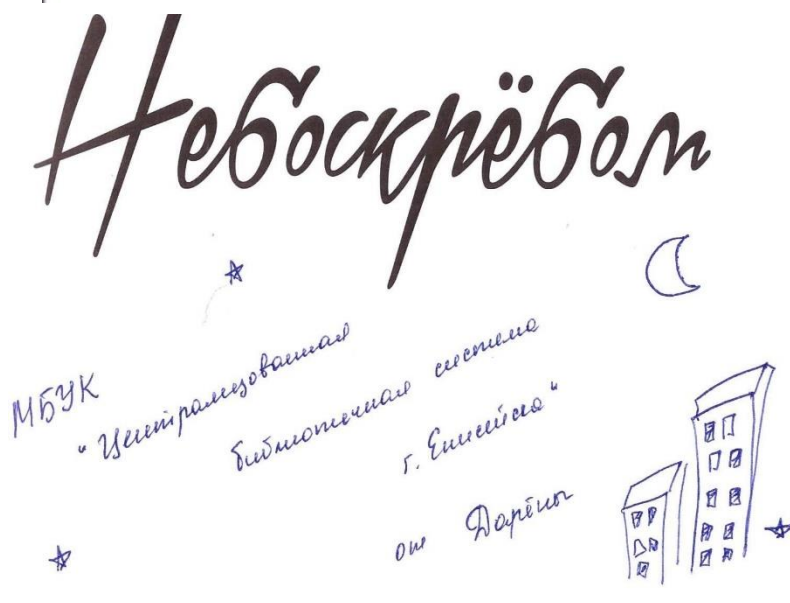 Небоскрёбом
МБУК
"Централизованная
библиотечная система
г. Енисейска"
от Дарёны